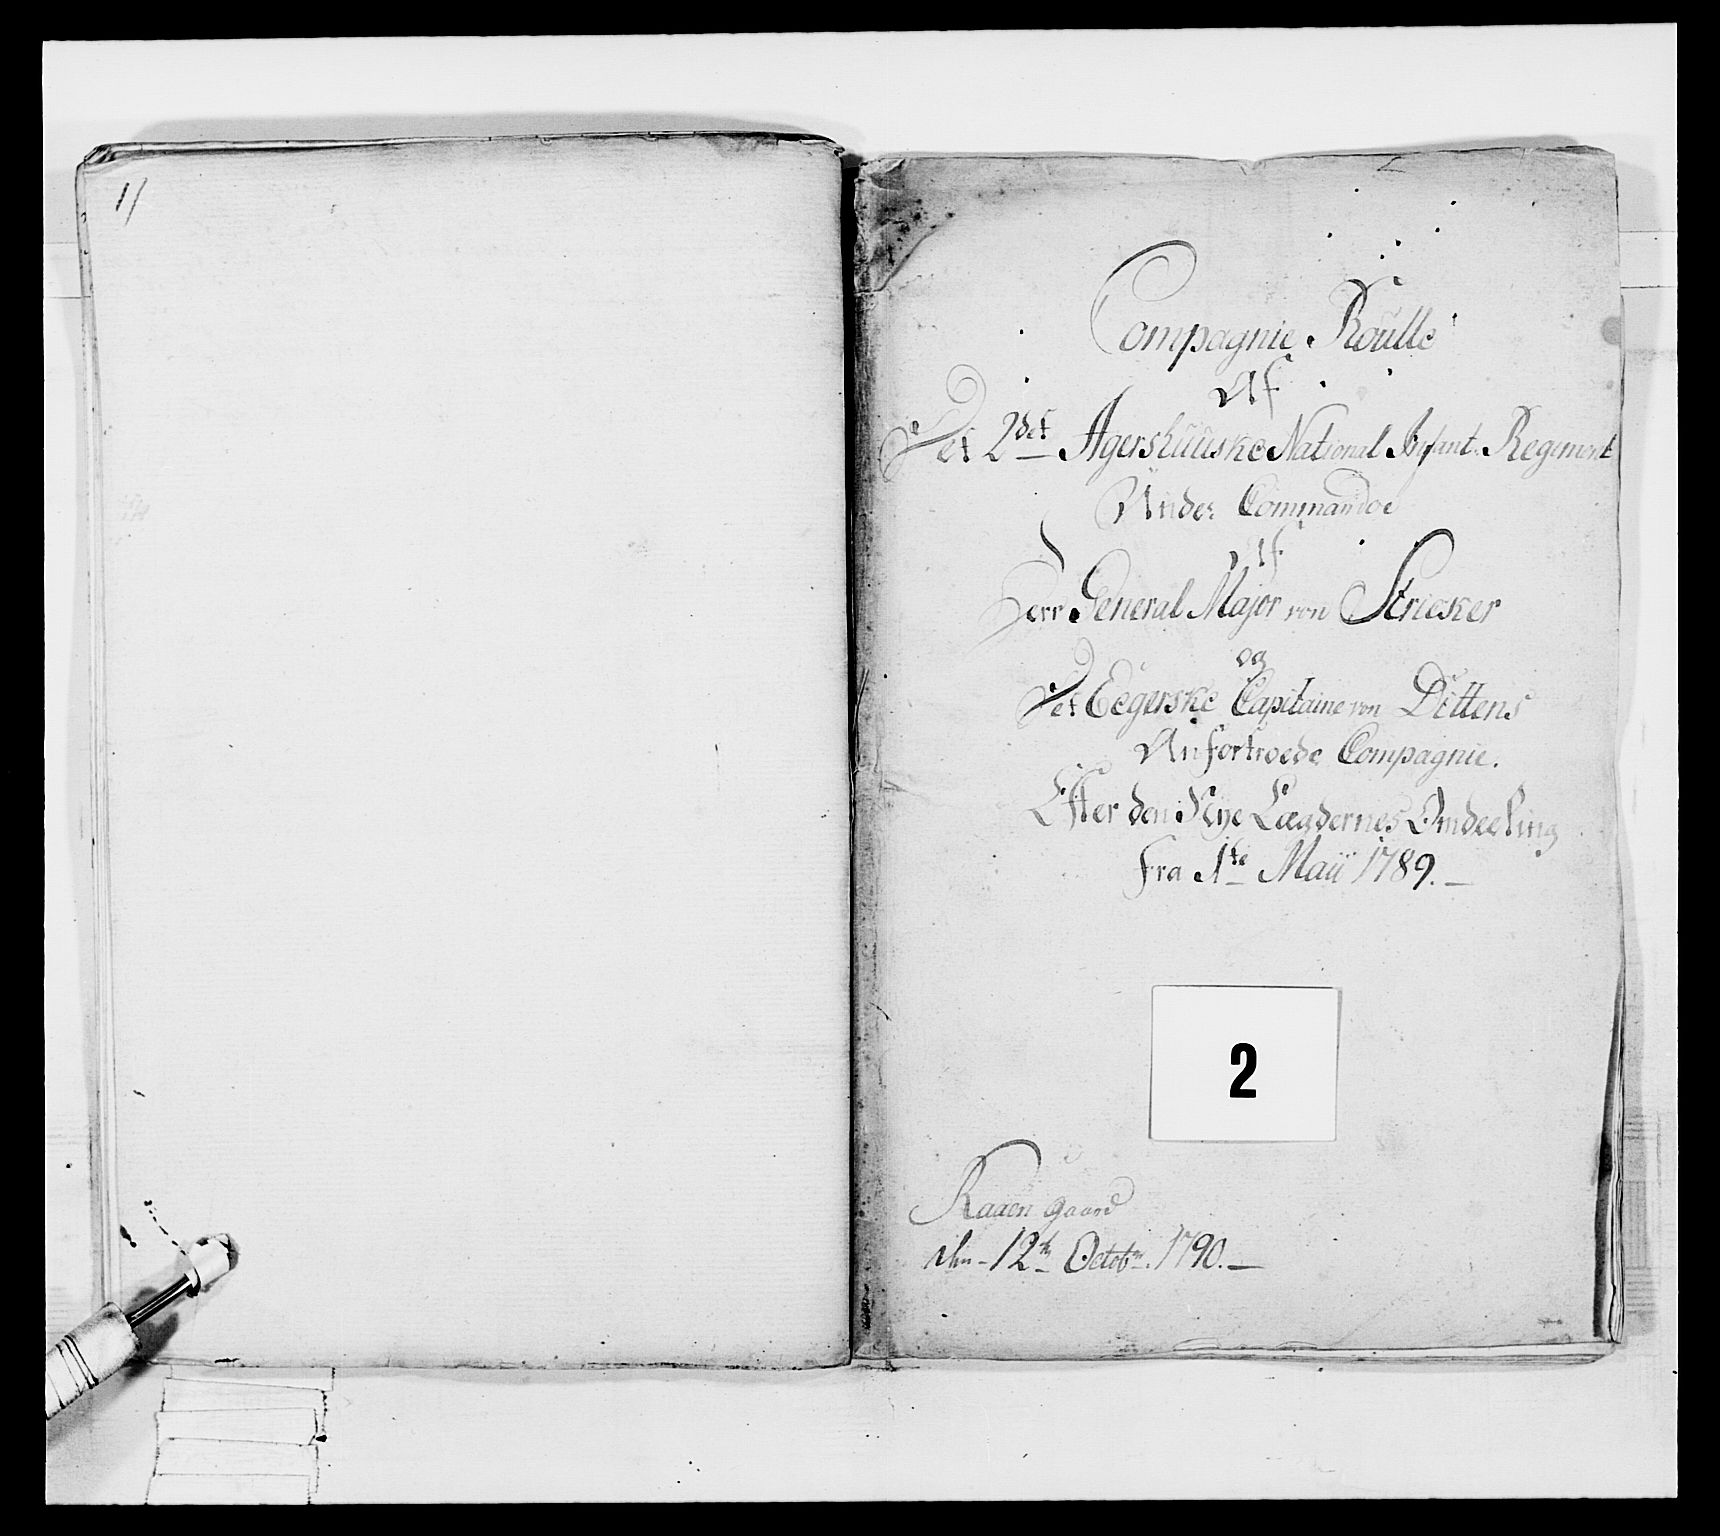 1/
Compagnie Roulle
Af
Det 2det Agershuuske National Infant. Regiment
Under Commandoe
Af
Herr General Major von Stricker
og
Det Eegerske Capitaine von Dittens
Anfortroede Compagnie.
Efter den Nye Lægdernes Omdeeling
fra 1te Maii 1789.
2
Raaen gaard
den 12te Octobr. 1790.